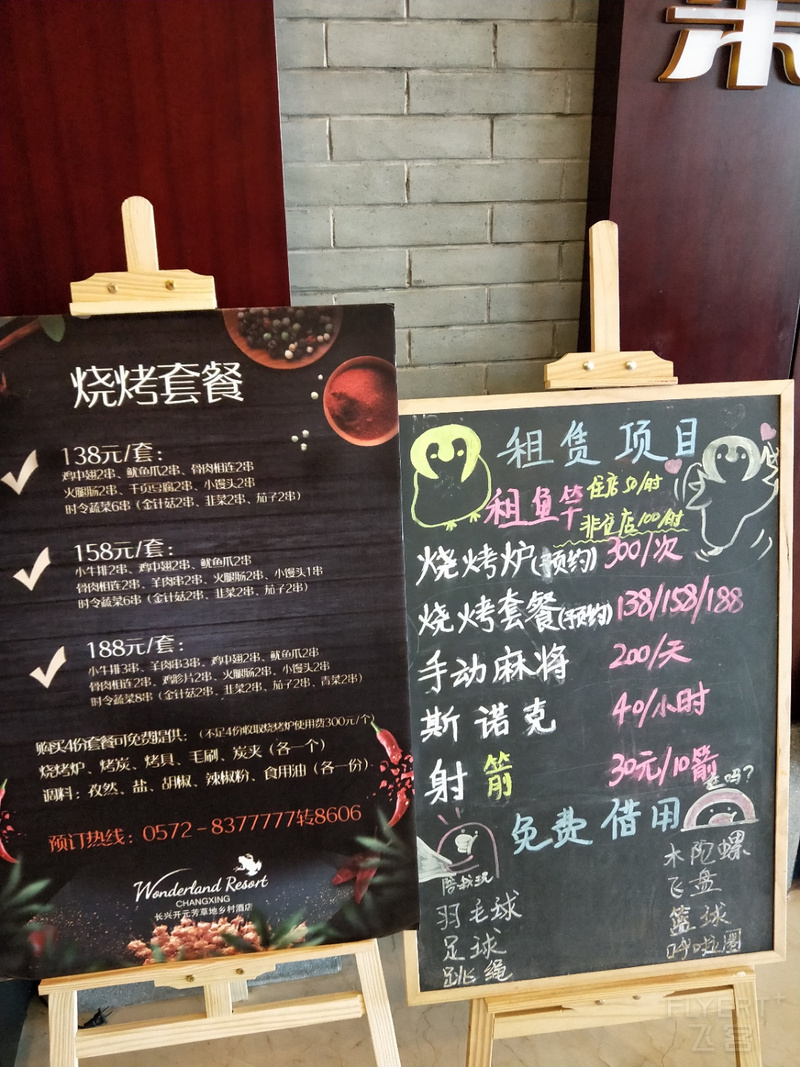 烧烤套餐
138元/套：
鸡中翅2串、鱿鱼爪2串、骨肉相连2串
火腿肠2串、千页豆腐2串、小馒头2串
时令蔬菜6串（金针菇2串、韭菜2串、茄子2串）
158元/套：
小牛排2串、鸡中翅2串、鱿鱼爪2串
骨肉相连2串、羊肉串2串、火腿肠2串、小馒头1串
时令蔬菜6串（金针菇2串、韭菜2串、茄子2串）
188元/套：
小牛排3串、羊肉串3串、鸡中翅2串、鱿鱼爪2串
骨肉相连2串、鸡胗片2串、火腿肠2串、小馒头2串
时令蔬菜8串（金针菇2串、韭菜2串、茄子2串、青菜2串）
购买4份套餐可免费提供：（不足4份收取烧烤炉使用费300元/个）
烧烤炉、烤炭、烤具、毛刷、炭夹（各一个）
调料：孜然、盐、胡椒、辣椒粉、食用油（各一份）
预订热线：0572-8377777转8606
Wonderland Resort
CHANGXING
长兴开元芳草地乡村酒店
租赁项目
租鱼竿 住店50/时
非住店100/时
烧烤炉(预约) 300/次
烧烤套餐(预约) 138/158/188
手动麻将 200/天
斯诺克 40/小时
射箭 30元/10箭
免费借用
陪我玩
羽毛球
足球
跳绳
木陀螺
飞盘
篮球
呼啦圈
FLYERT+
飞客